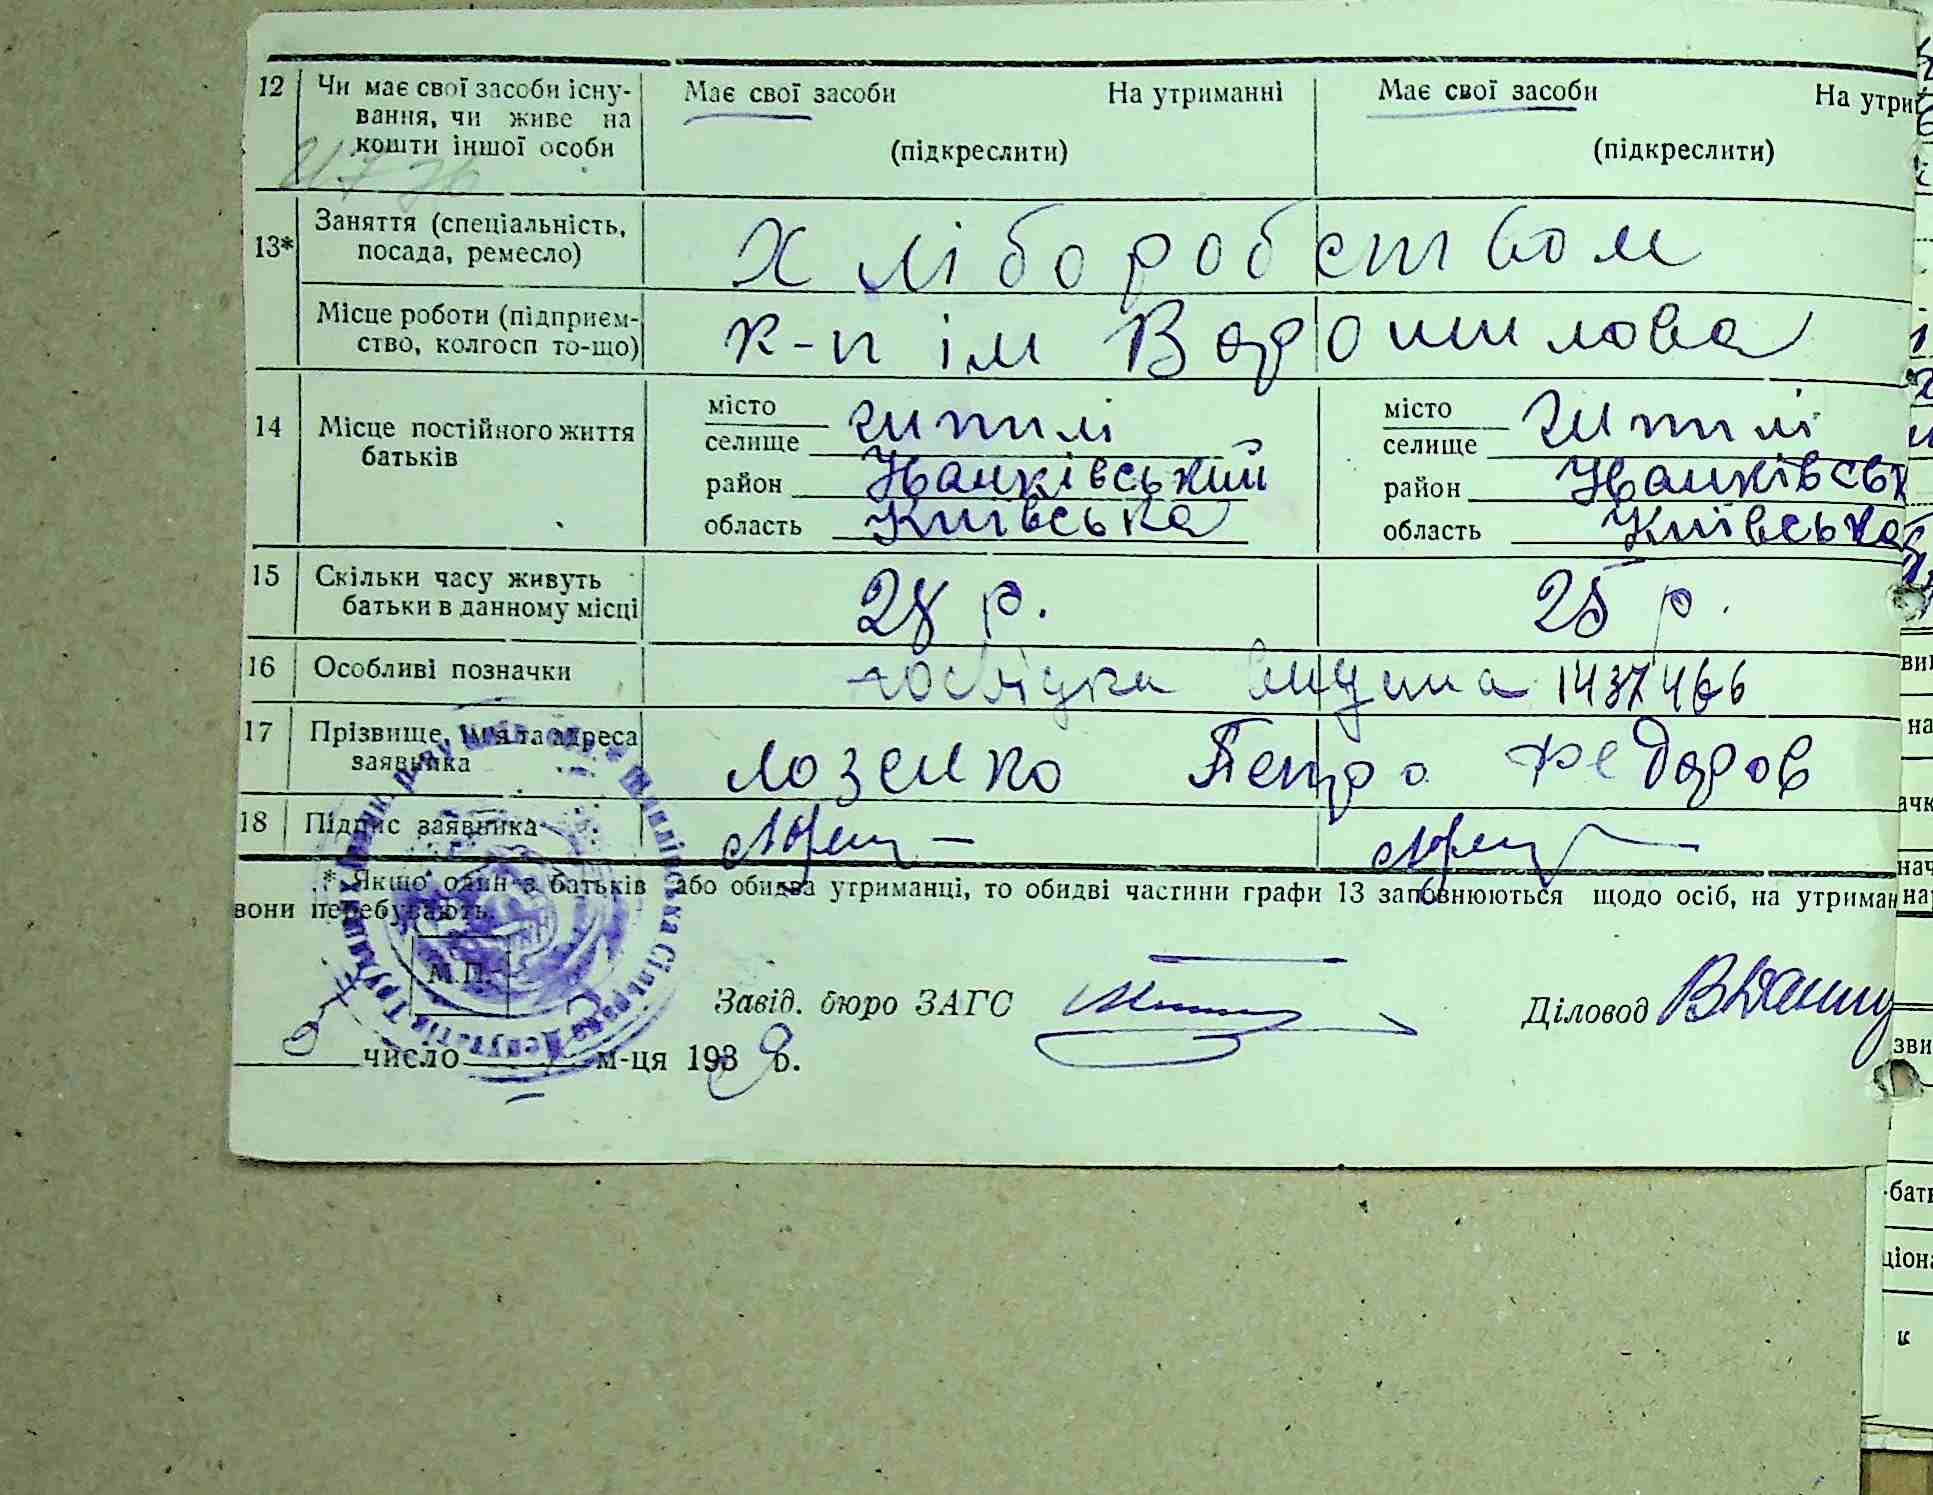 12 Чи має свої засоби існу- Має свої засоби На утриманні Має свої засоби На утри
вання, чи живе на
кошти іншої особи (підкреслити) (підкреслити)
13* Заняття (спеціальність, Хліборобством
посада, ремесло)
Місце роботи (підприєм- к-п ім Ворошилова
ство, колгосп то-що)
14 Місце постійного життя місто місто
батьків селище селище
район Іванківський район Іванківськ
область Київська область Київська
15 Скільки часу живуть 28 р. 25 р.
батьки в данному місці
16 Особливі позначки 1437466
17 Прізвище, ім'я та адреса Лозенко Петро Федоров
заявника
18 Підпис заявника
* Якщо один з батьків або обидва утриманці, то обидві частини графи 13 заповнюються щодо осіб, на утриман
вони перебувають.
М.П.
Завід. бюро ЗАГС Діловод
число м-ця 1939 р.